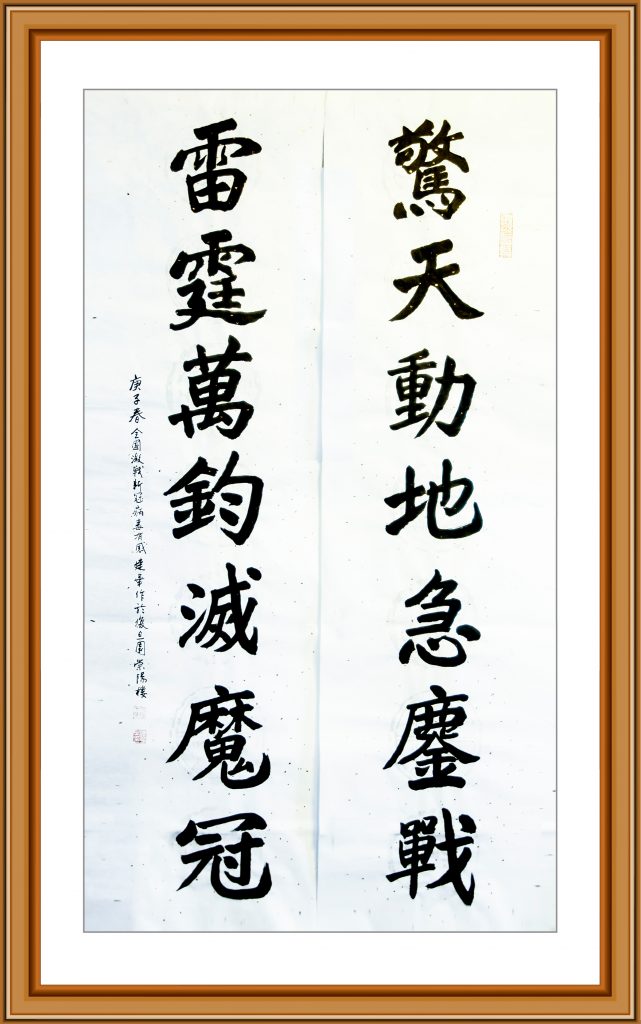 驚天動地急鏖戰
雷霆萬鈞滅魔冠
庚子春全國激戰新冠病毒有感建華作於復旦園崇陽樓